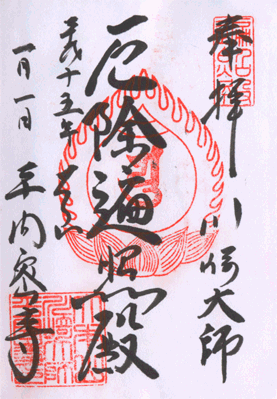 奉拝 川崎大師
厄除遍照殿
平成十五年
一月一日 平間寺